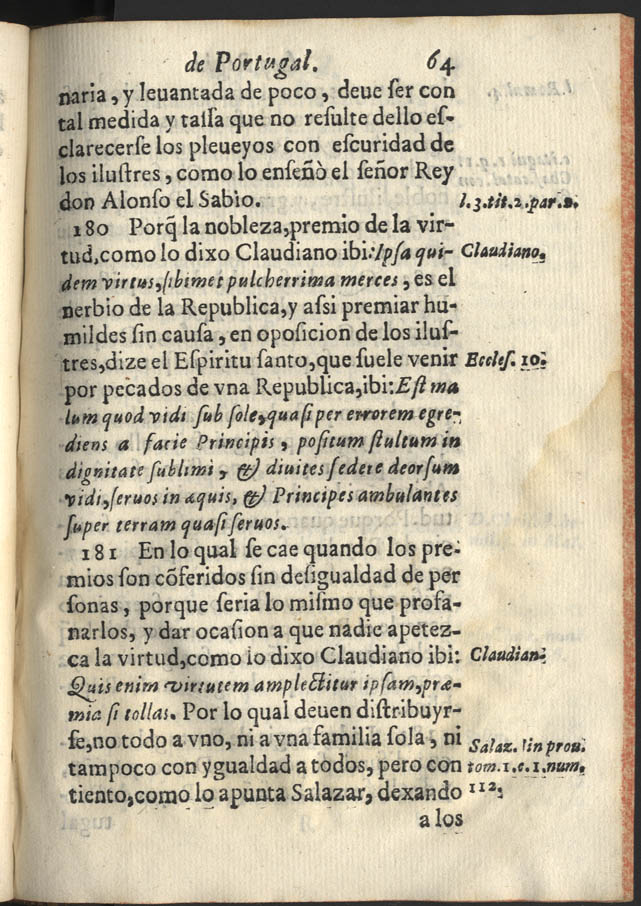 de Portugal. 64
naria, y leuantada de poco, deue ſer con
tal medida y taſſa que no reſulte dello eſ-
clarecerſe los pleueyos con eſcuridad de
los iluſtres, como lo enſeñò el ſeñor Rey
don Alonſo el Sabio.
l.3.tit.2.par.2.
180 Porq̃ la nobleza, premio de la vir-
tud, como lo dixo Claudiano ibi: Ipſa qui-
Claudiano.
dem virtus, ſibimet pulcherrima merces, es el
nerbio de la Republica, y aſsi premiar hu-
mildes ſin cauſa, en opoſicion de los iluſ-
tres, dize el Eſpiritu ſanto, que ſuele venir
Eccleſ. 10.
por pecados de vna Republica, ibi: Eſt ma
lum quod vidi ſub ſole, quaſi per errorem egre-
diens a facie Principis, poſitum ſtultum in
dignitate ſublimi, & diuites ſedere deorſum
vidi, ſeruos in æquis, & Principes ambulantes
ſuper terram quaſi ſeruos.
181 En lo qual ſe cae quando los pre-
mios ſon cõferidos ſin deſigualdad de per
ſonas, porque ſeria lo miſmo que profa-
narlos, y dar ocaſion a que nadie apetez-
ca la virtud, como lo dixo Claudiano ibi:
Claudian.
Quis enim virtutem amplectitur ipſam, præ-
mia ſi tollas. Por lo qual deuen diſtribuyr-
ſe, no todo a vno, ni a vna familia ſola, ni
tampoco con ygualdad a todos, pero con
tiento, como lo apunta Salazar, dexando
Salaz. in prou.
tom.1.c.1.num.
112.
a los